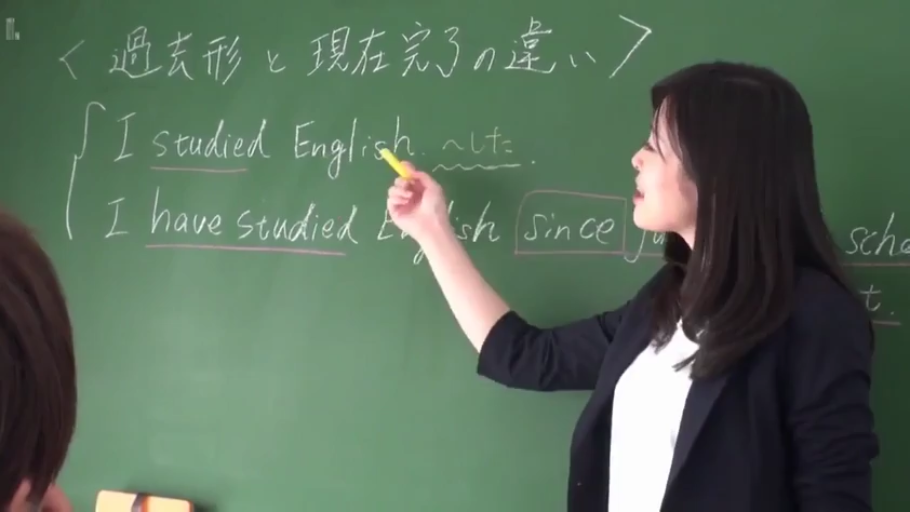 <過去形と現在完了の違い>
I studied English. ~した.
I have studied English since